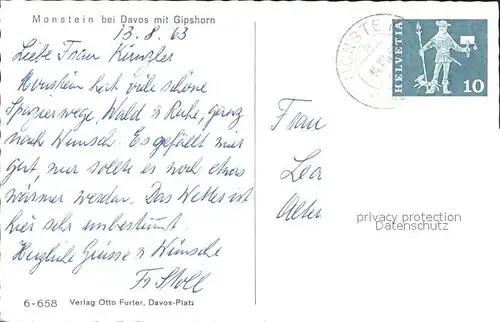 Monstein bei Davos mit Gipshorn
13.8.63
Liebe Frau Künzler
Monstein hat viele schöne
Spazierwege, Wald u Ruhe, ganz
nach Wunsch. Es gefällt mir
gut, nur sollte es noch etwas
wärmer werden. Das Wetter ist
hier sehr unbestimmt.
Herzliche Grüsse u Wünsche
Fr Stoll
6-658 Verlag Otto Furter, Davos-Platz
MONSTEI
HELVETIA
10
Frau
Lea
Alter
privacy protection
Datenschutz